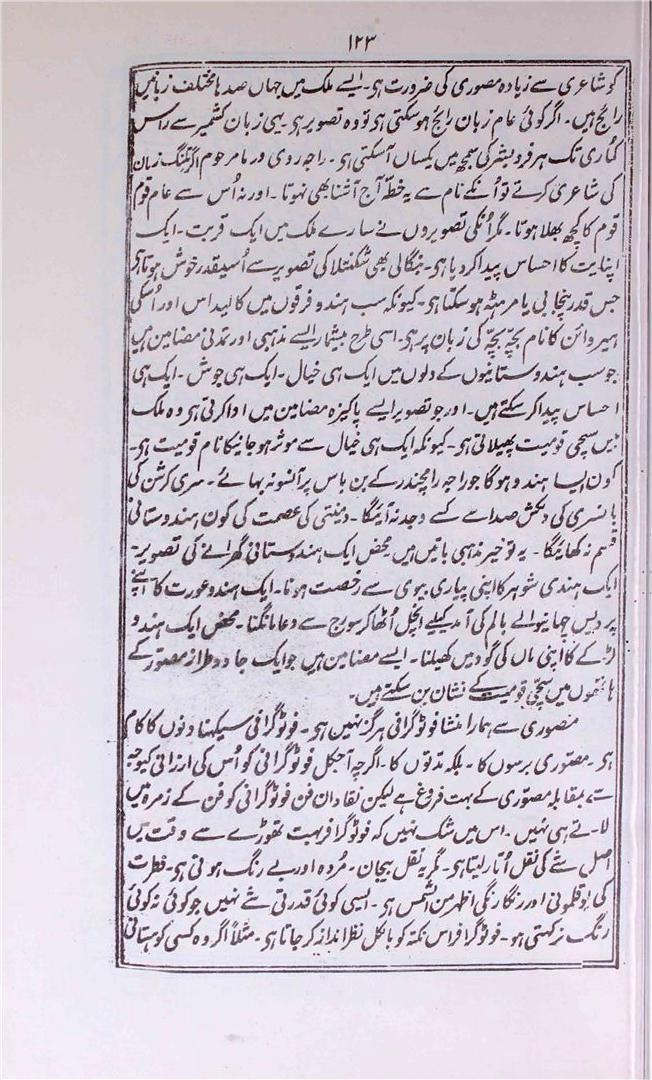 ۱۲۳
کو شاعری سے زیادہ مصوری کی ضرورت ہی۔ ایسے ملک میں جہاں صدہا مختلف زبانیں
رائج ہیں۔ اگر کوئی عام زبان رائج ہوسکتی ہی تو وہ تصویر ہی۔ یہی زبان کشمیر سے راس
کماری تک ہر فرد بشر کی سمجھ میں یکساں آسکتی ہی۔ راجہ روی ورما مرحوم اگر تلنگ زبان
کی شاعری کرتے تو اُنکے نام سے یہ خطّہ آج آشنا بھی نہوتا۔ اور نہ اُس سے عام قوم
قوم کا کچھ بھلا ہوتا۔ مگر اُنکی تصویروں نے سارے ملک میں ایک قربت۔ ایک
اپنایت کا احساس پیدا کردیا ہی۔ بنگالی بھی شکنتلا کی تصویر سے اُسیقدر خوش ہوتا ہی
جس قدر پنجابی یا مرہٹہ ہوسکتا ہی۔ کیونکہ سب ہندو فرقوں میں کالیداس اور اُسکی
ہیروائن کا نام بچّہ بچّہ کی زبان پر ہی۔ اسی طرح بیشمار ایسے مذہبی اور تمدنی مضامین ہیں
جو سب ہندوستانیوں کے دلوں میں ایک ہی خیال۔ ایک ہی جوش۔ ایک ہی
احساس پیدا کرسکتے ہیں۔ اور جو تصویر ایسے پاکیزہ مضامین میں ادا کرتی ہی وہ ملک
میں سچی قومیت پھیلاتی ہی۔ کیونکہ ایک ہی خیال سے موثر ہوجانیکا نام قومیت ہی۔
کون ایسا ہندو ہوگا جو راجہ رامچندر کے بن باس پر آنسو نہ بہائے۔ سری کرشن کی
بانسری کی دلکش صدا سے کسے وجد نہ آئیگا۔ دمینتی کی عصمت کی کون ہندوستانی
قسم نہ کھائیگا۔ یہ تو خیر مذہبی باتیں ہیں محض ایک ہندوستانی گھرانے کی تصویر۔
ایک ہندی شوہر کا اپنی پیاری بیوی سے رخصت ہونا۔ ایک ہندو عورت کا اپنے
پردیس جانیوالے بالم کی آمد کیلیے آنچل اُٹھا کر سورج سے دعا مانگنا۔ محض ایک ہندو
لڑکے کا اپنی ماں کی گود میں کھیلنا۔ ایسے مضامین ہیں جو ایک جادو طراز مصوّر کے
ہاتھوں میں سچّی قومیت کے نشان بن سکتے ہیں۔
مصوری سے ہمارا منشا فوٹوگرافی ہرگز نہیں ہی۔ فوٹوگرافی سیکھنا دنوں کا کام
ہی۔ مصوّری برسوں کا۔ بلکہ مدتوں کا۔ اگرچہ آجکل فوٹوگرافی کو اُس کی ارزانی کیوجہ
سے بمقابلہ مصوّری کے بہت فروغ ہے لیکن نقادان فن فوٹوگرافی کو فن کے زمرہ میں
لاتے ہی نہیں۔ اس میں شک نہیں کہ فوٹوگرافر بہت تھوڑے سے وقت میں
اصل شے کی نقل اُتار لیتا ہی۔ مگر یہ نقل بیجان۔ مُردہ اور بے رنگ ہوتی ہی۔ فطرت
کی بوقلمونی اور رنگارنگی اظہر من الشمس ہی۔ ایسی کوئی قدرتی شے نہیں جو کوئی نہ کوئی
رنگ نہ رکھتی ہو۔ فوٹوگرافر اس نکتہ کو بالکل نظر انداز کرجاتا ہی۔ مثلاً اگر وہ کسی کوہستانی